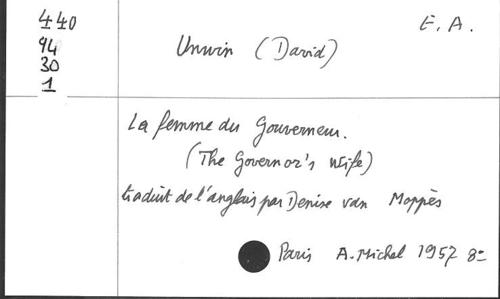 440
94
30
1
E. A.
Unwin (David)
La femme du Gouverneur.
(The Governor's wife)
traduit de l'anglais par Denise van Moppès
Paris A. Michel 1957 8°